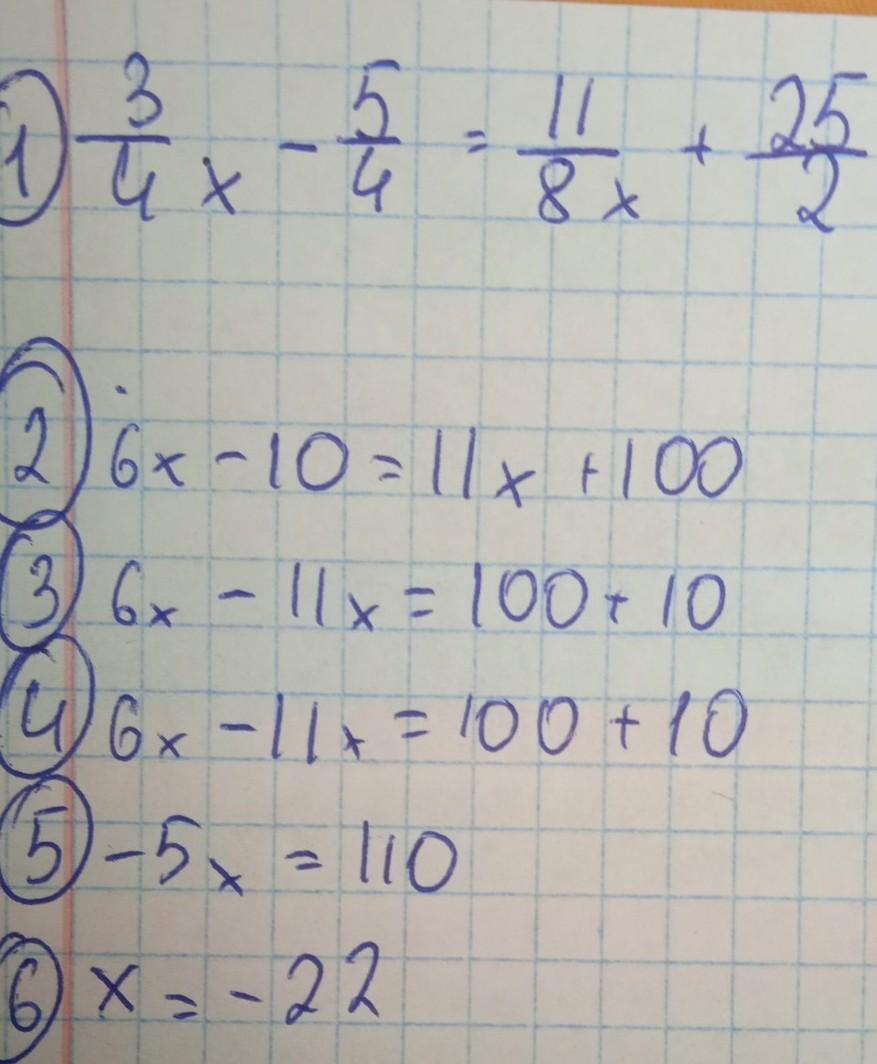 ① 3/4 x - 5/4 = 11/8 x + 25/2
② 6x - 10 = 11x + 100
③ 6x - 11x = 100 + 10
④ 6x - 11x = 100 + 10
⑤ -5x = 110
⑥ x = -22